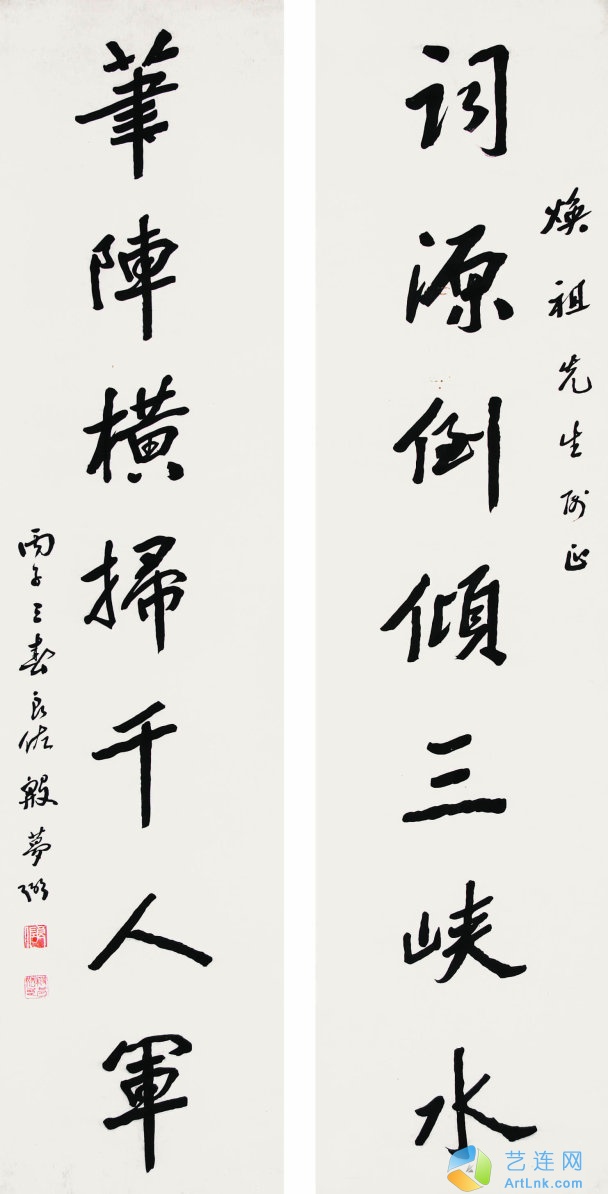 煥祖先生正
詞源倒傾三峽水
筆陣橫掃千人軍
丙子三春良佐殷夢弼
艺连网
ArtLnk.com